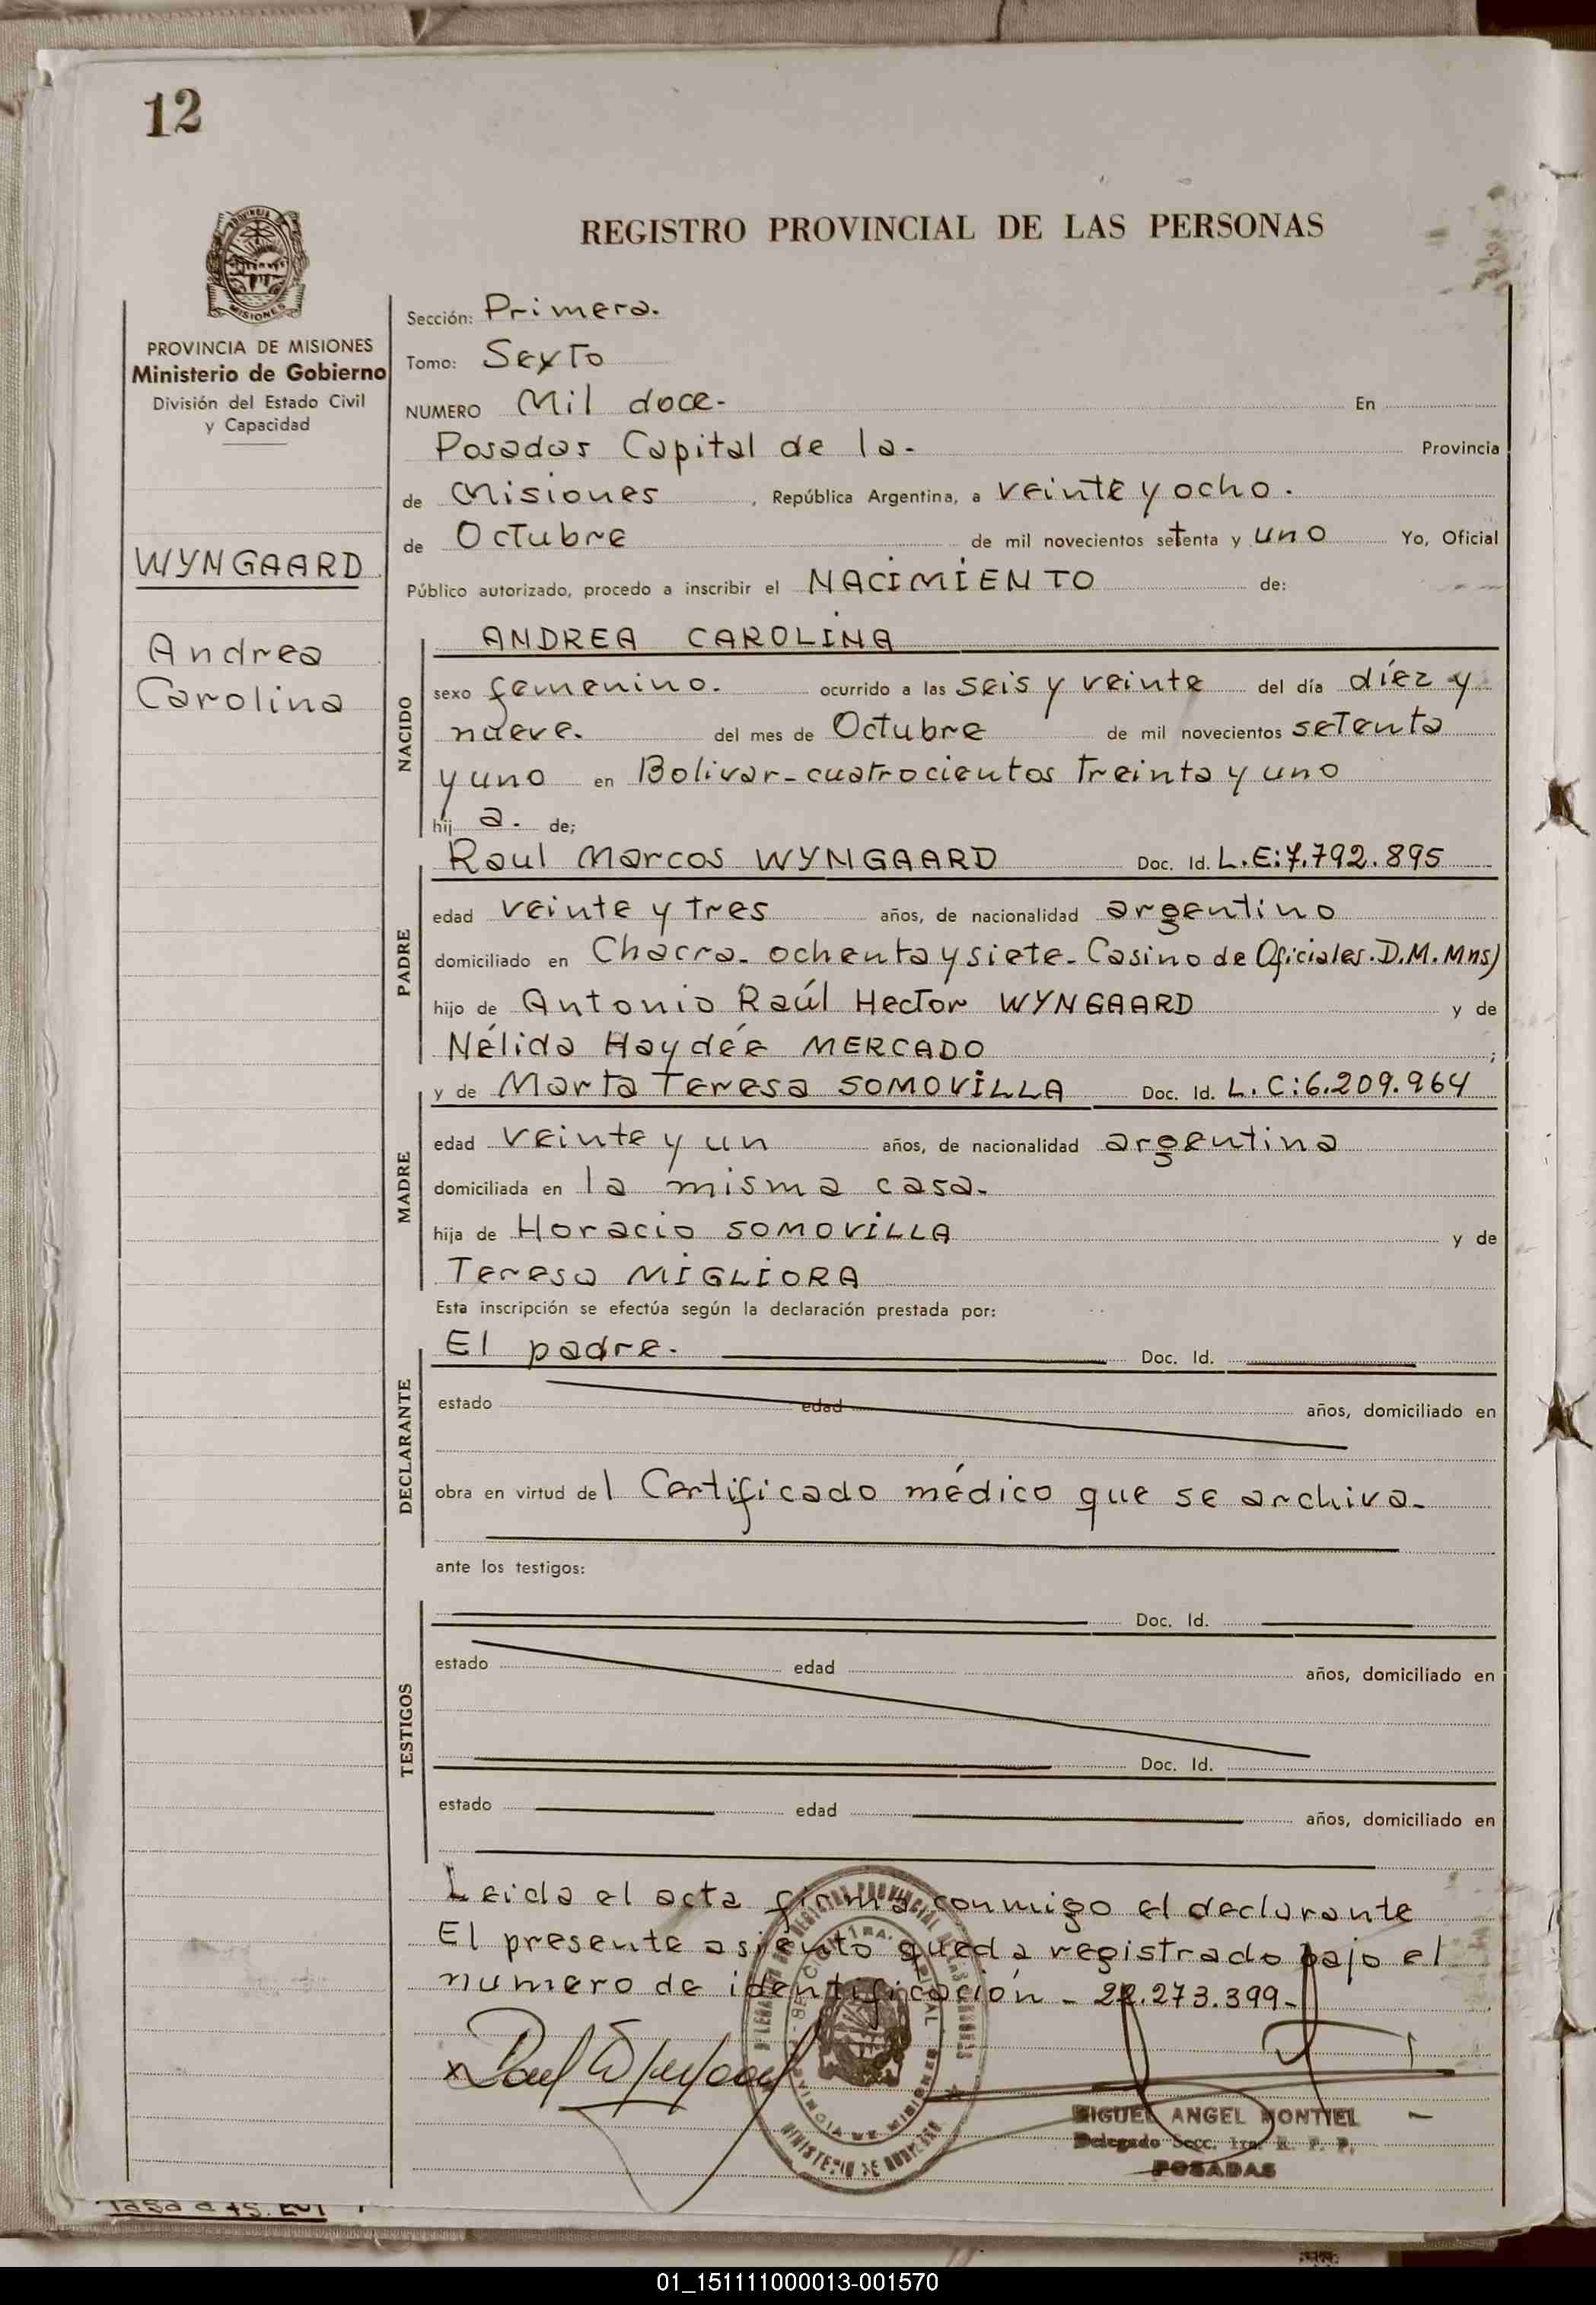 12
REGISTRO PROVINCIAL DE LAS PERSONAS
PROVINCIA DE MISIONES
Ministerio de Gobierno
División del Estado Civil
y Capacidad
WYNGAARD
Andrea
Carolina
Sección: Primera.
Tomo: Sexto
NUMERO Mil doce- En
Posadas Capital de la- Provincia
de Misiones, República Argentina, a veinte y ocho.
de Octubre de mil novecientos setenta y uno Yo, Oficial
Público autorizado, procedo a inscribir el NACIMIENTO de:
NACIDO
ANDREA CAROLINA
sexo femenino. ocurrido a las seis y veinte del día díez y
nueve. del mes de Octubre de mil novecientos setenta
y uno en Bolivar-cuatrocientos treinta y uno
hij a. de;
PADRE
Raul Marcos WYNGAARD Doc. Id. L.E:7.792.895
edad veinte y tres años, de nacionalidad argentino
domiciliado en Chacra- ochenta y siete- Casino de Oficiales. D.M. Mns)
hijo de Antonio Raúl Hector WYNGAARD y de
Nélida Haydée MERCADO ;
MADRE
y de Marta Teresa SOMOVILLA Doc. Id. L.C:6.209.964
edad veinte y un años, de nacionalidad argentina
domiciliada en la misma casa-
hija de Horacio SOMOVILLA y de
Teresa MIGLIORA
Esta inscripción se efectúa según la declaración prestada por:
DECLARANTE
El padre. Doc. Id.
estado edad años, domiciliado en
obra en virtud del Certificado médico que se archiva-
ante los testigos:
TESTIGOS
Doc. Id.
estado edad años, domiciliado en
Doc. Id.
estado edad años, domiciliado en
Leida el acta firma conmigo el declarante
El presente asiento queda registrado bajo el
numero de identificación - 22.273.399-
MIGUEL ANGEL MONTIEL
Delegado Secc. 1ra. R. P. P.
POSADAS
01_151111000013-001570